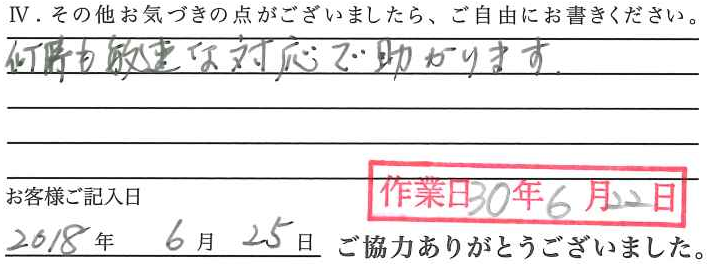 Ⅳ．その他お気づきの点がございましたら、ご自由にお書きください。
何時も敏速な対応で助かります.
作業日30年6月22日
お客様ご記入日
2018年 6月 25日 ご協力ありがとうございました。